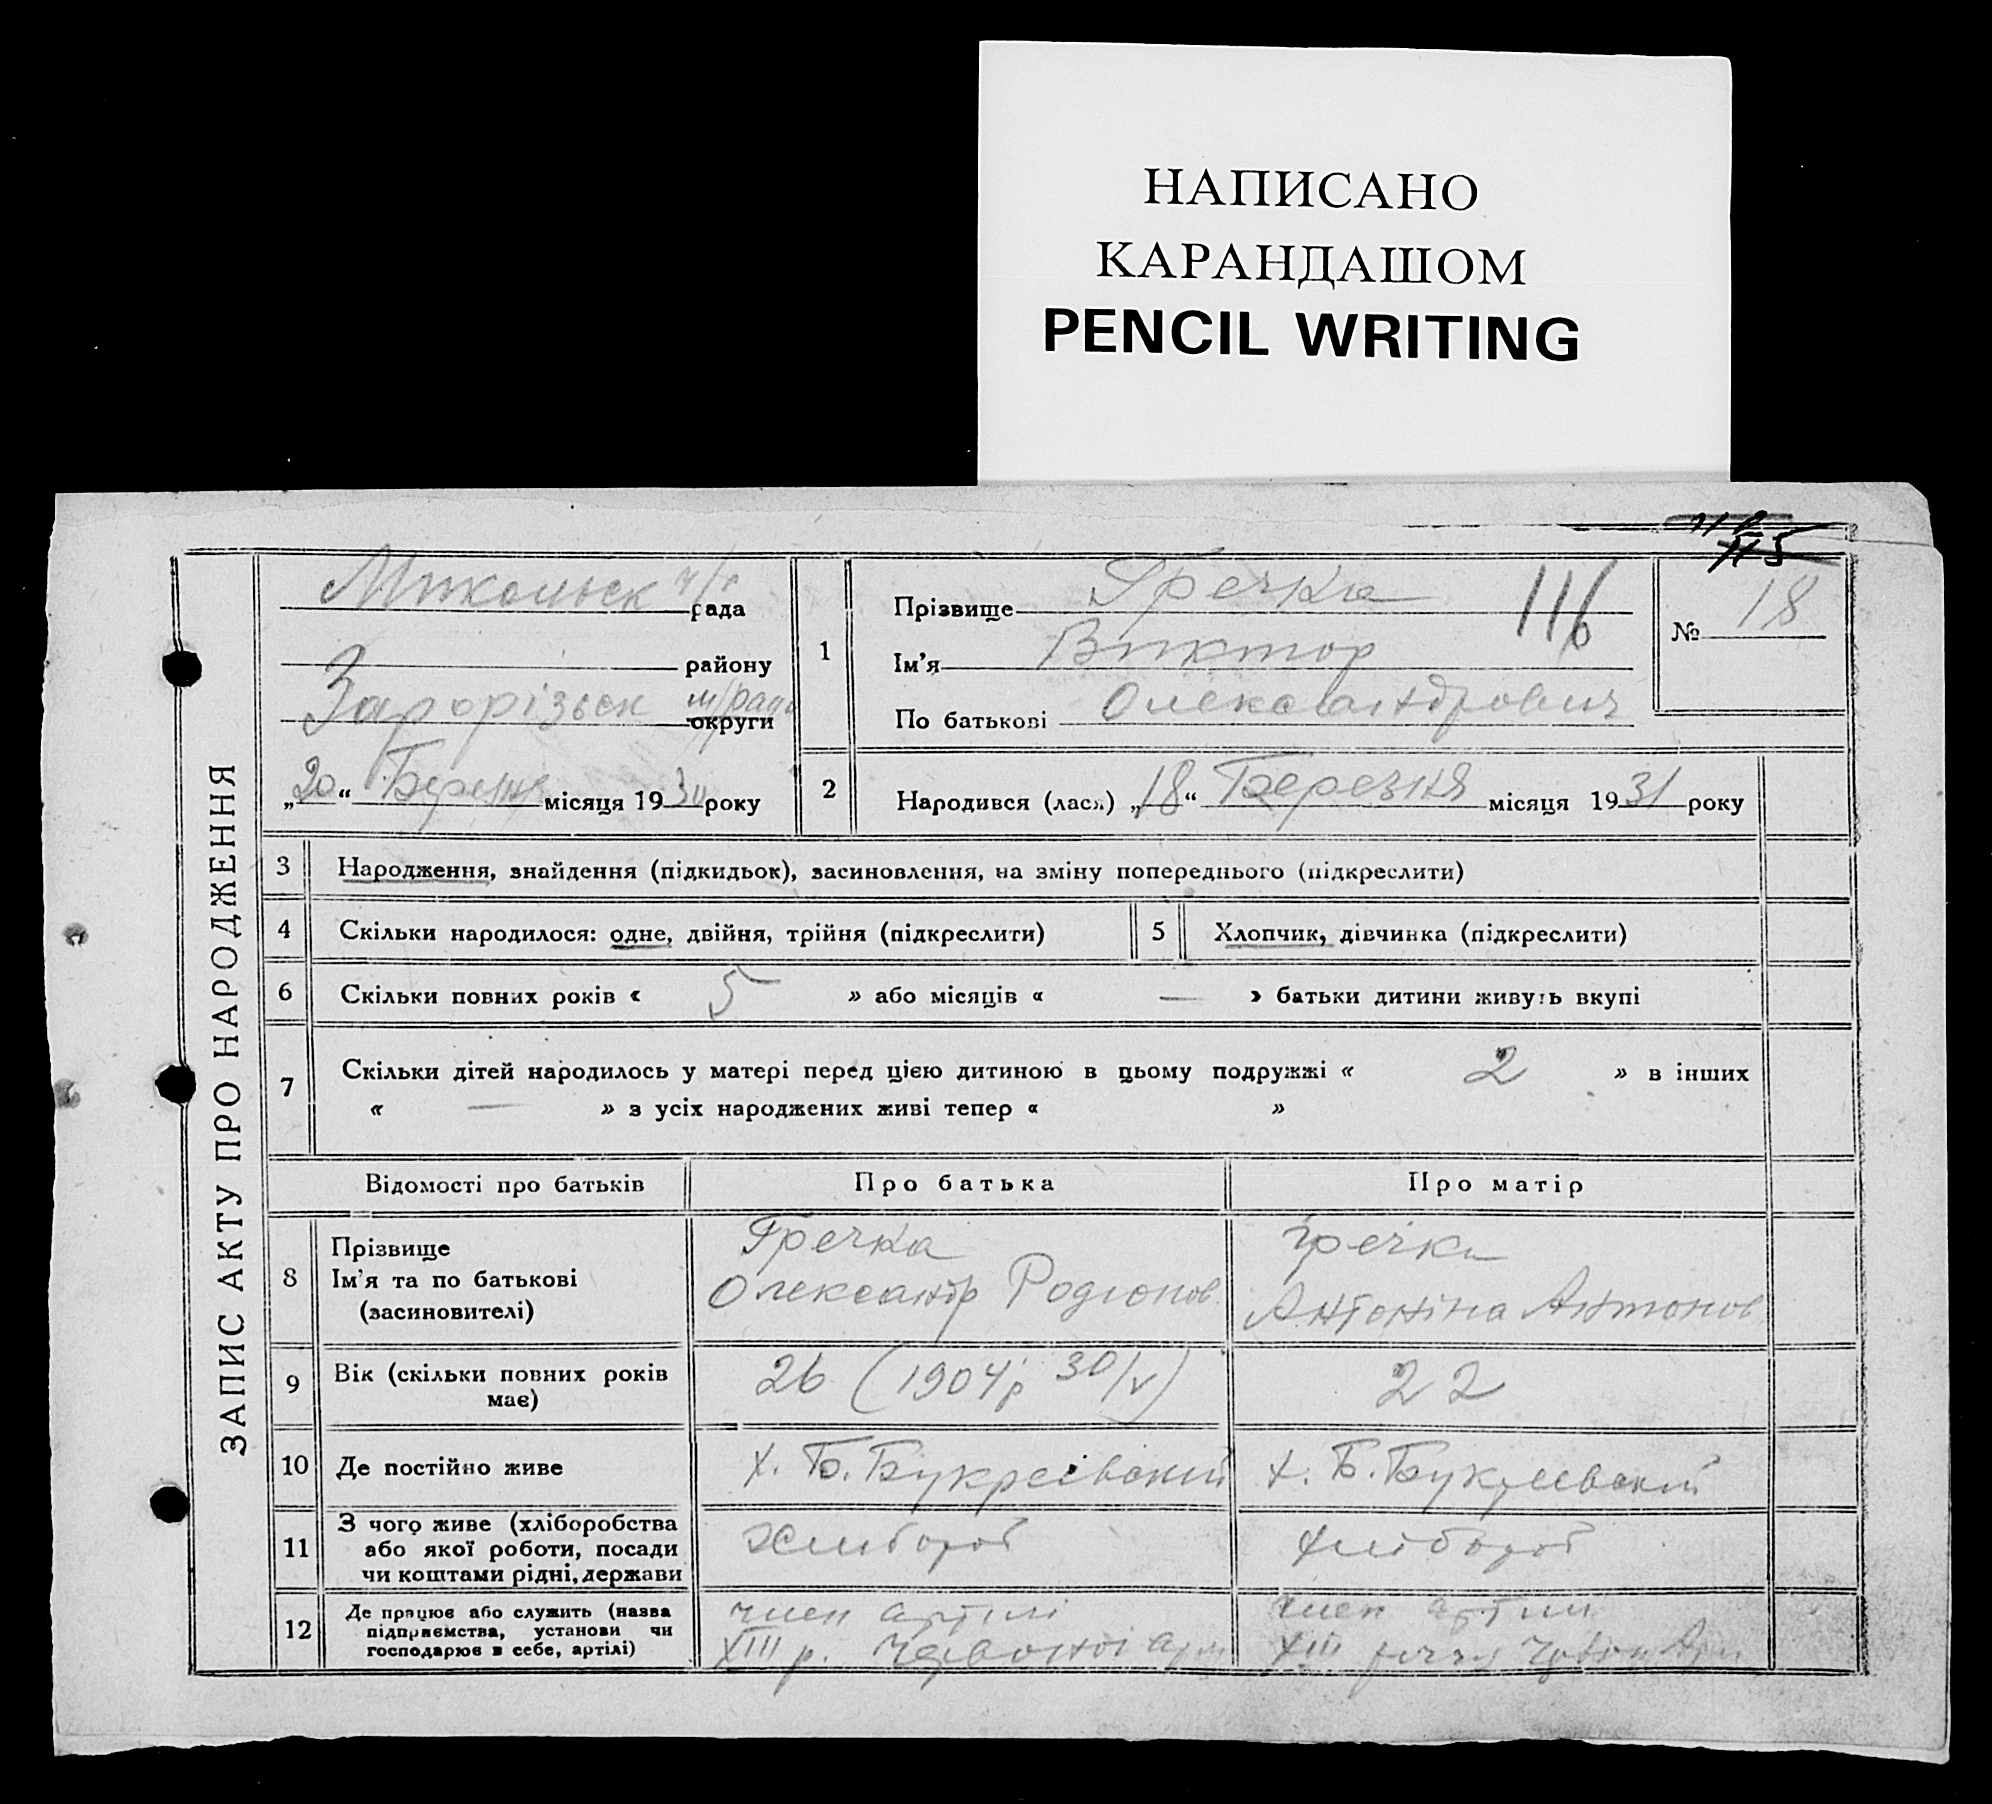 НАПИСАНО
КАРАНДАШОМ
PENCIL WRITING
ЗАПИС АКТУ ПРО НАРОДЖЕННЯ
рада
району
Запорізьк м/ради округи
„20“ місяця 19 року
1
Прізвище Гречка 116
Ім'я Виктор
По батькові Олександрович
№ 18
2 Народився (лася) „18“ Березня місяця 1931 року
3 Народження, знайдення (підкидьок), засиновлення, на зміну попереднього (підкреслити)
4 Скільки народилося: одне, двійня, трійня (підкреслити) 5 Хлопчик, дівчинка (підкреслити)
6 Скільки повних років « 5 » або місяців « — » батьки дитини живуть вкупі
7 Скільки дітей народилось у матері перед цією дитиною в цьому подружжі « 2 » в інших
« — » з усіх народжених живі тепер « »
Відомості про батьків Про батька Про матір
8 Прізвище Гречка Гречка
Ім'я та по батькові Олександр Родіонов Антоніна Антонов
(засиновителі)
9 Вік (скільки повних років має) 26 (1904р 30/V) 22
10 Де постійно живе х. Б. х. Б.
11 З чого живе (хліборобства Хлибороб Хлібороб
або якої роботи, посади
чи коштами рідні, держави
12 Де працює або служить (назва член артілі член артили
підприємства, установи чи XIII р. Червоної Арм XIII
господарює в себе, артілі)